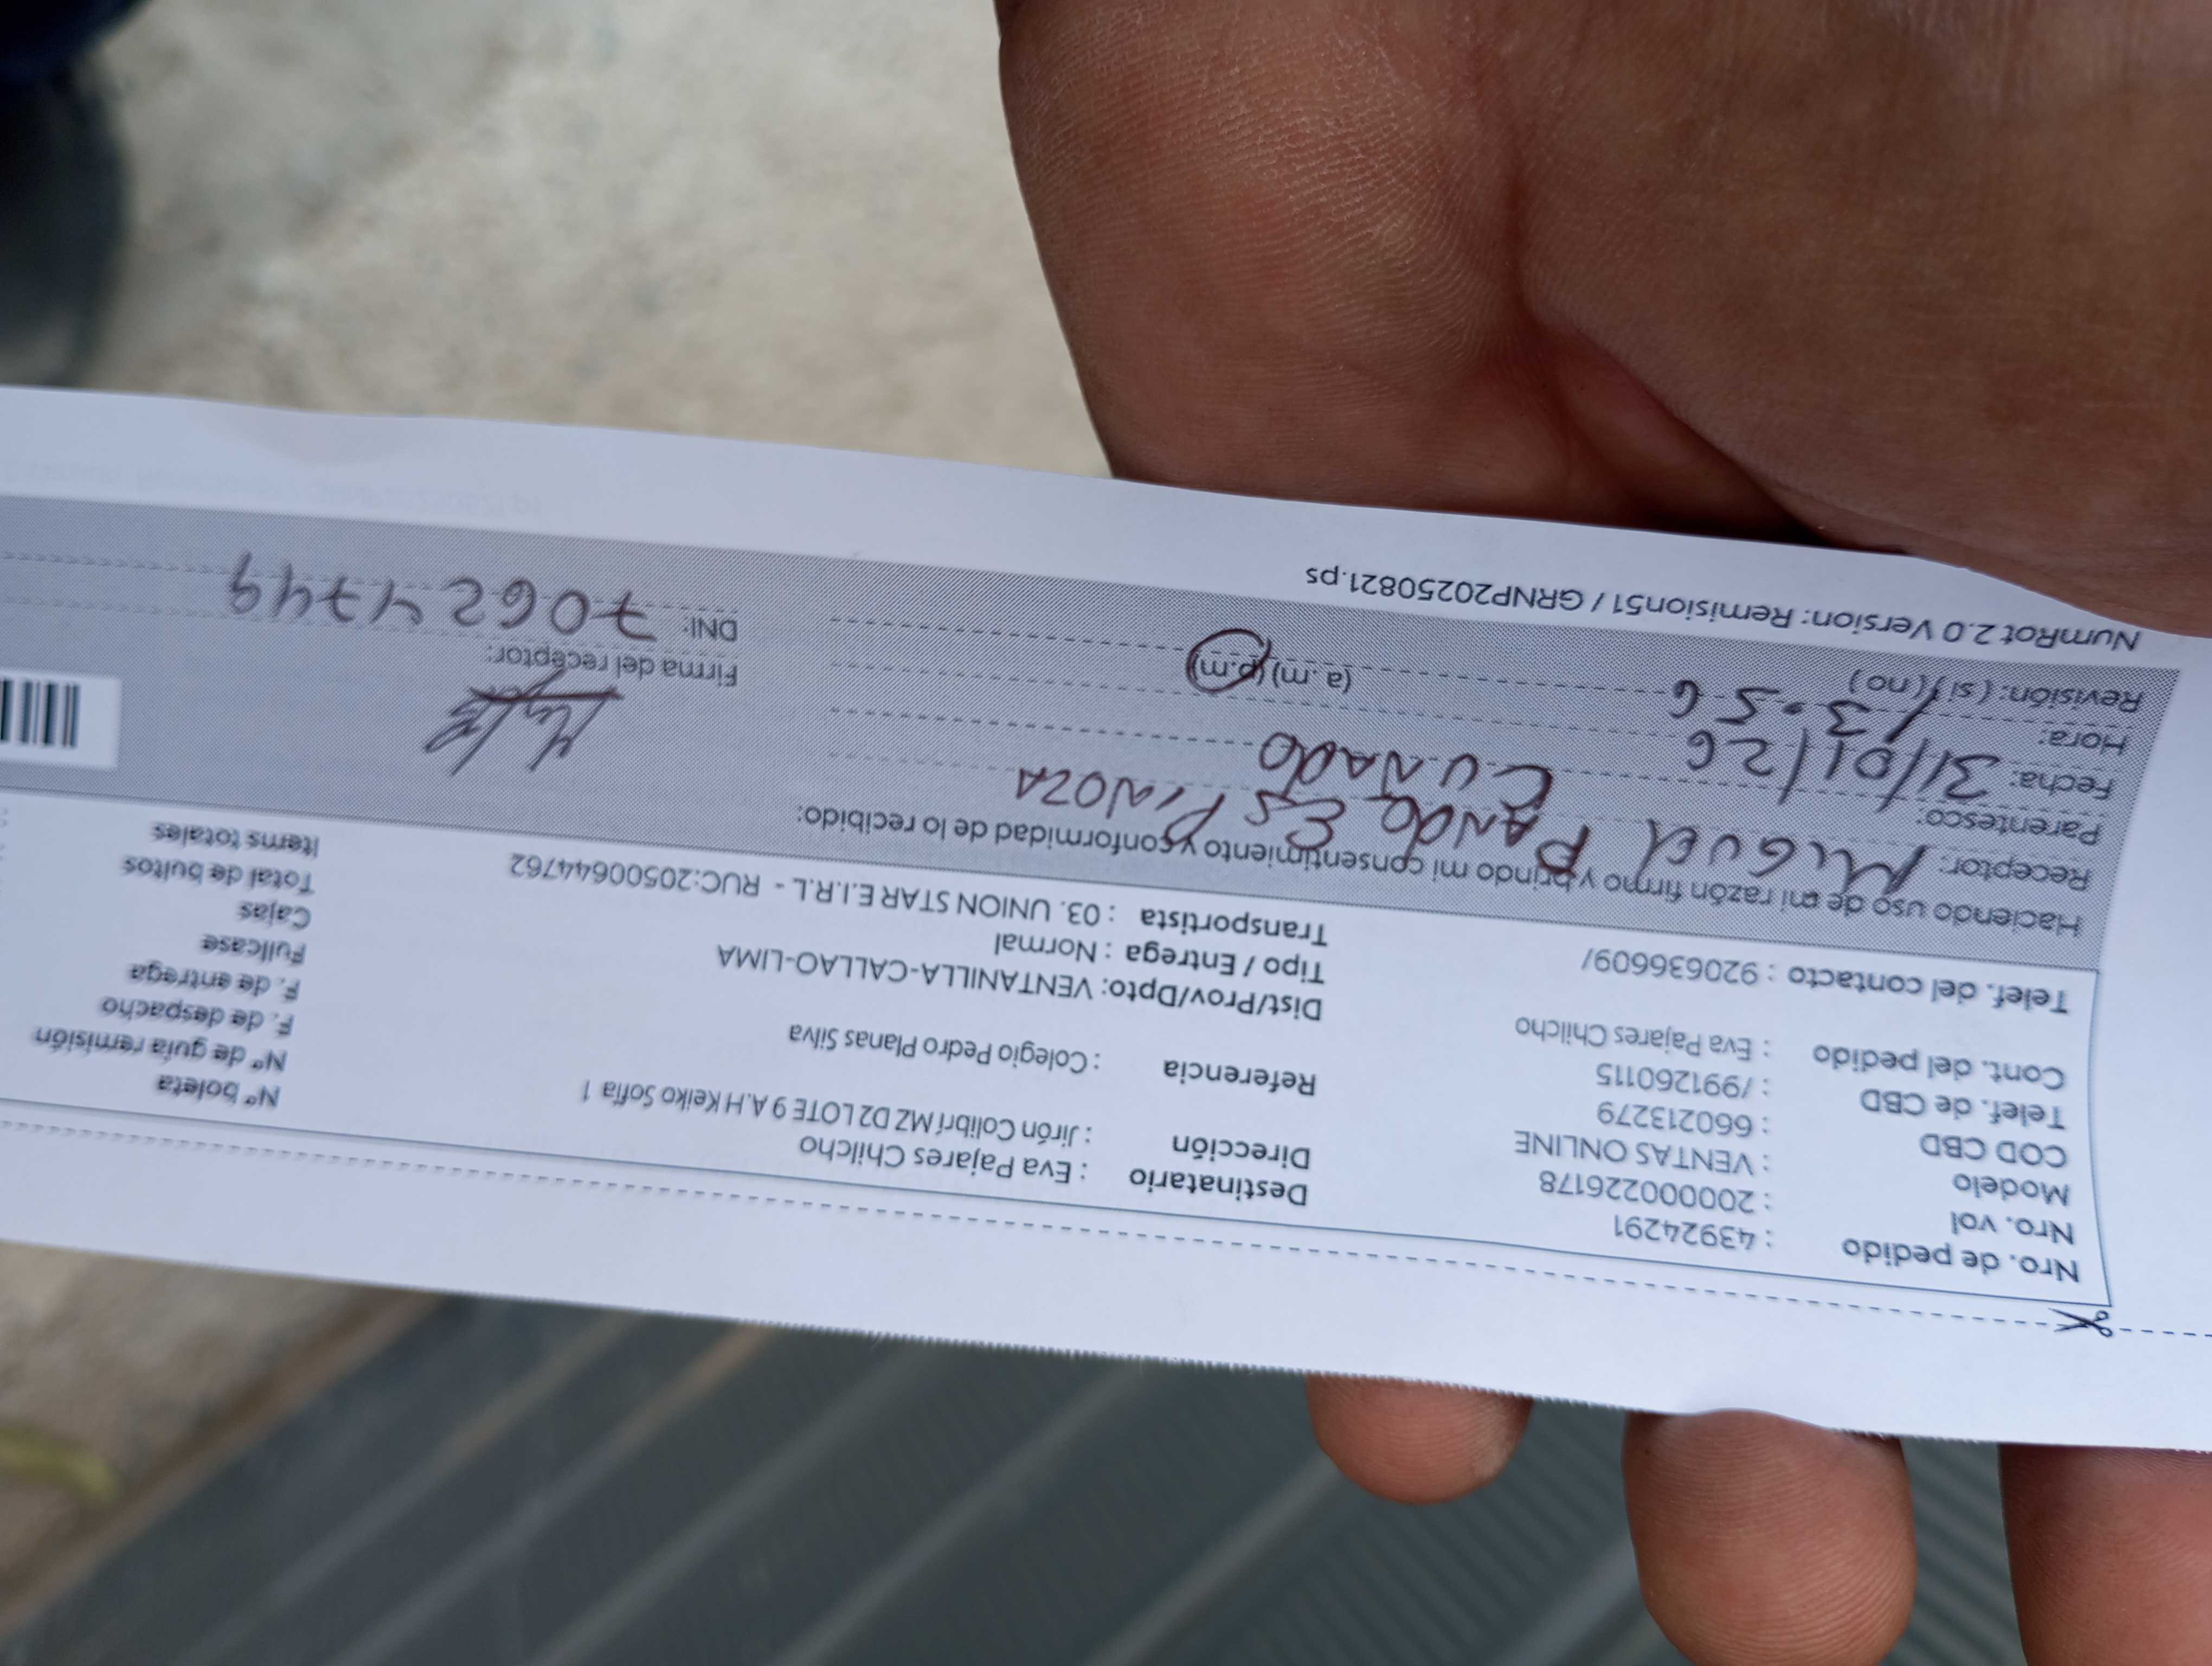 Nro. de pedido : 43924291
Nro. vol : 200000226178
Modelo : VENTAS ONLINE
COD CBD : 660213279
Telef. de CBD : /991260115
Cont. del pedido : Eva Pajares Chilcho
Telef. del contacto : 920636609/
Destinatario : Eva Pajares Chilcho
Dirección : Jirón Colibrí MZ D2 LOTE 9 A.H Keiko Sofía 1
Referencia : Colegio Pedro Planas Silva
Dist/Prov/Dpto: VENTANILLA-CALLAO-LIMA
Tipo / Entrega : Normal
Transportista : 03. UNION STAR E.I.R.L - RUC:20500644762
Nº boleta
Nº de guía remisión
F. de despacho
F. de entrega
Fullcase
Cajas
Total de bultos
Items totales
Haciendo uso de mi razón firmo y brindo mi consentimiento y conformidad de lo recibido:
Receptor: MIGUEL PANDO ESPINOZA
Parentesco: CUNADO
Fecha: 31/01/26
Hora: 3:56 (a.m) (p.m)
Revisión: ( si ) ( no )
Firma del receptor:
DNI: 70624749
NumRot 2.0 Version: Remision51 / GRNP20250821.ps